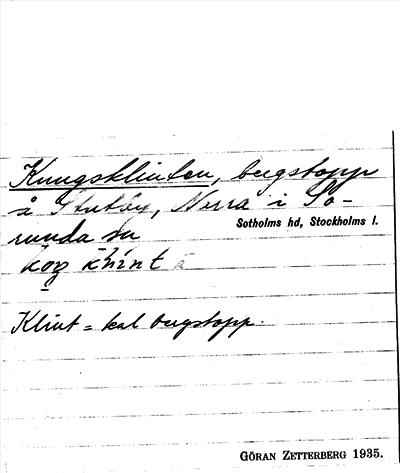 Kungsklinten, bergstopp
å Stutby, Norra i So-
runda sn
Sotholms hd, Stockholms l.
Klint = kal bergstopp.
GÖRAN ZETTERBERG 1935.